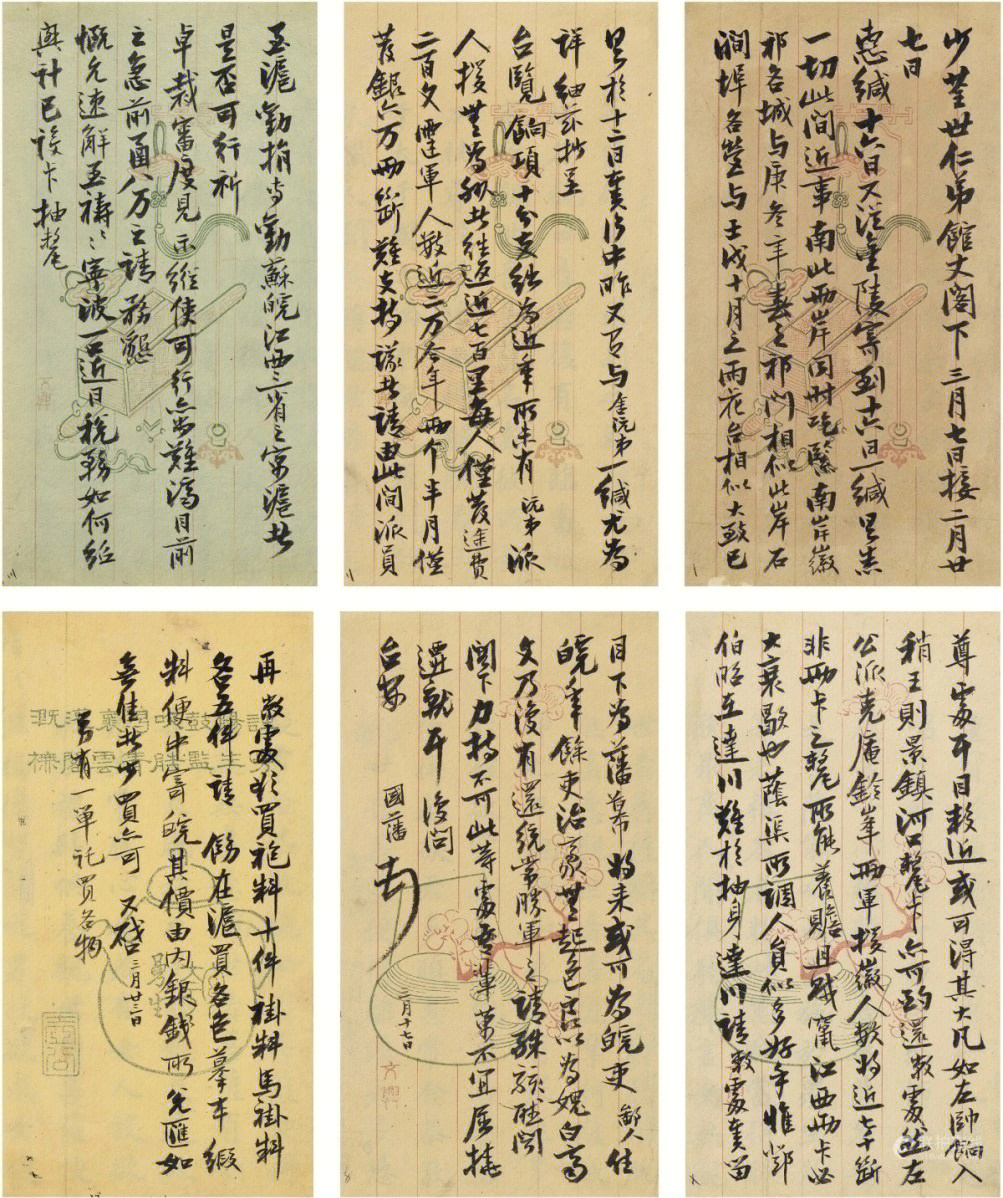 少荃世仁弟館丈閣下三月七日接二月廿
七日
惠緘十六日又從金陵寄到十六日一緘具悉
一切此間近事南北兩岸同時吃緊南岸徽
祁各城與庚冬辛春之祁門相似北岸石
澗埠各營與壬戌十月之雨花台相似大致已
具於十二日奏片中昨又有與舍沅弟一緘尤為
詳細茲抄呈
台覽餉項十分支絀為近年所未有沅弟派
人援無為州其往返近七百里每人僅發途費
二百文霆軍人數近二万今年兩个半月僅
發銀六万兩斷難支持議者請由此間派員
至滬勸捐専勸蘇皖江西三省之寓滬者
是否可行祈
卓裁審度見示縱使可行尚難濟目前
之急前函八万之請務懇
慨允速解至禱至禱寧波一口近日稅務如何紹
興計已設卡抽釐
尊處耳目較近或可得其大凡如左帥餉入
稍王則景鎮河口釐卡亦可酌還敝處然左
公派克庵鈴峯兩軍援徽人數將近七千斷
非兩卡之釐所能養贍且賊竄江西兩卡必
大衰歇也蔭渠所調人員似多好手惟鄧
伯昭在達川難於抽身達川請敝處奏留
目下為藩幕將來或可為皖吏鄙人住
皖年餘吏治毫無起色良以為媿白齊
文乃復有還統常勝軍之請殊駭聽聞
閣下力持不可此等處専華萬不宜屈撓
遷就耳復問
台安
國藩頓首
三月十七日
再敝處欲買袍料十件褂料馬褂料
各五件請飭在滬買各色摹本緞
料便中寄皖其價由內銀錢所兌匯如
無佳者少買亦可又啟三月廿三日
另有一單託買各物